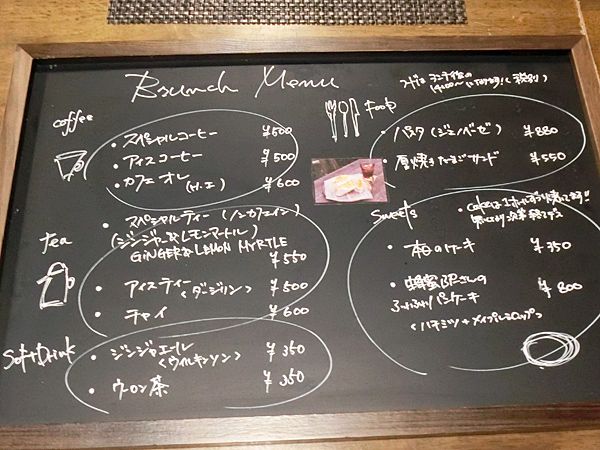 Brunch Menu
coffee
・スペシャルコーヒー ¥500
・アイスコーヒー ¥500
・カフェオレ ¥600
tea
・スペシャルティー (ノンカフェイン)
(ジンジャー&レモンマートル)
GINGER&LEMON MYRTLE
¥550
・アイスティー ¥500
<ダージリン>
・チャイ ¥600
Soft Drink
・ジンジャエール ¥350
<ウィルキンソン>
・ウーロン茶 ¥350
フードはランチ後の
税別)
Food
・パスタ(ジェノベーゼ) ¥880
・厚焼きたまごサンド ¥550
Sweets
・Cakeは
・本日のケーキ ¥350
・蜂蜜屋さんの
ふわふわパンケーキ ¥800
<ハチミツ+メイプルシロップ>